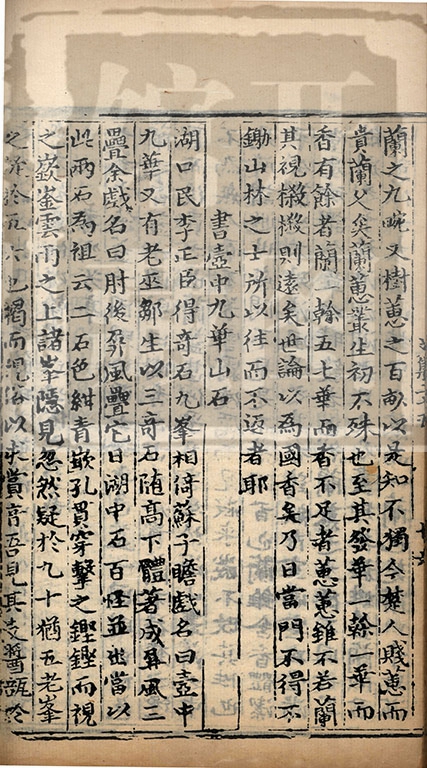 蘭之九畹又樹蕙之百畝以是知不獨今楚人賤蕙而
貴蘭久矣蘭蕙叢生初不殊也至其發華一幹一華而
香有餘者蘭一幹五七華而香不足者蕙蕙雖不若蘭
其視椒榝則遠矣世論以為國香矣乃曰當門不得不
鋤山林之士所以往而不返者耶
書壺中九華山石
湖口民李正臣得奇石九峯相倚蘇子瞻戲名曰壺中
九華又有老巫鄒生以三奇石随高下體著成屏風三
疊余戲名曰肘後屏風疊它日湖中石百怪並出當以
此兩石為祖云二石色紺青嵌孔貫穿擊之鏗鏗而視
之嶔崟雲雨之上諸峯隱見忽然疑於九十猶五老峯
之 於五六也 而 以求賞音吾見其支醬瓿於